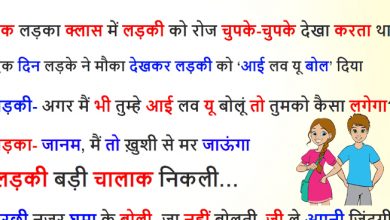 क लड़का क्लास में लड़की को रोज चुपके-चुपके देखा करता था
एक दिन लड़के ने मौका देखकर लड़की को ‘आई लव यू बोल’ दिया
लड़की- अगर मैं भी तुम्हे आई लव यू बोलूं तो तुमको कैसा लगेगा?
लड़का- जानम, मैं तो ख़ुशी से मर जाऊंगा
लड़की बड़ी चालाक निकली...
नजर घुमा के बोली, जा नहीं बोलती, जी ले अपनी जिंदगी